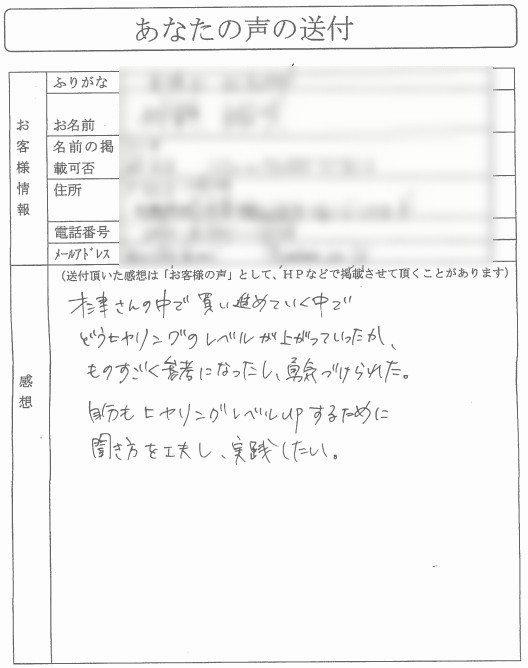 あなたの声の送付
お客様情報
ふりがな
お名前
名前の掲
載可否
住所
電話番号
メールアドレス
感想
(送付頂いた感想は「お客様の声」として、HPなどで掲載させて頂くことがあります)
津さんの中で買い進めていく中で
どうヒヤリングのレベルが上がっていったか、
ものすごく参考になったし、勇気づけられた。
自分もヒヤリングレベルupするために
聞き方を工夫し、実践したい。